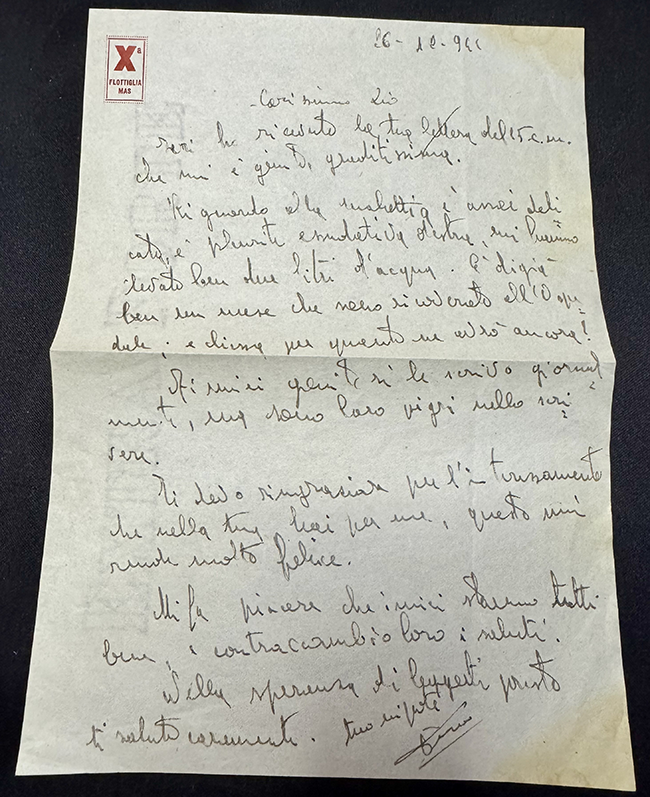 Xª
FLOTTIGLIA
MAS
26-12-944
Carissimo Zio
ho ricevuto la tua lettera del 15 c.m.
che mi è giunta graditissima.
Riguardo alla malattia è assai deli
cata, è pleurite essudativa destra, mi hanno
levato ben due litri d'acqua. È digià
ben un mese che sono ricoverato all'Ospe=
dale; e chissà per quanto ne avrò ancora!
Ai miei genitori le scrivo giornal=
mente, ma sono loro pigri nello scri=
vere.
Ti devo ringraziare per l'interessamento
che nella tua hai per me, questo mi
rende molto felice.
Mi fa piacere che i miei stanno tutti
bene, e contraccambio loro i saluti.
Nella speranza di leggerti presto
ti saluto caramente. tuo nipote